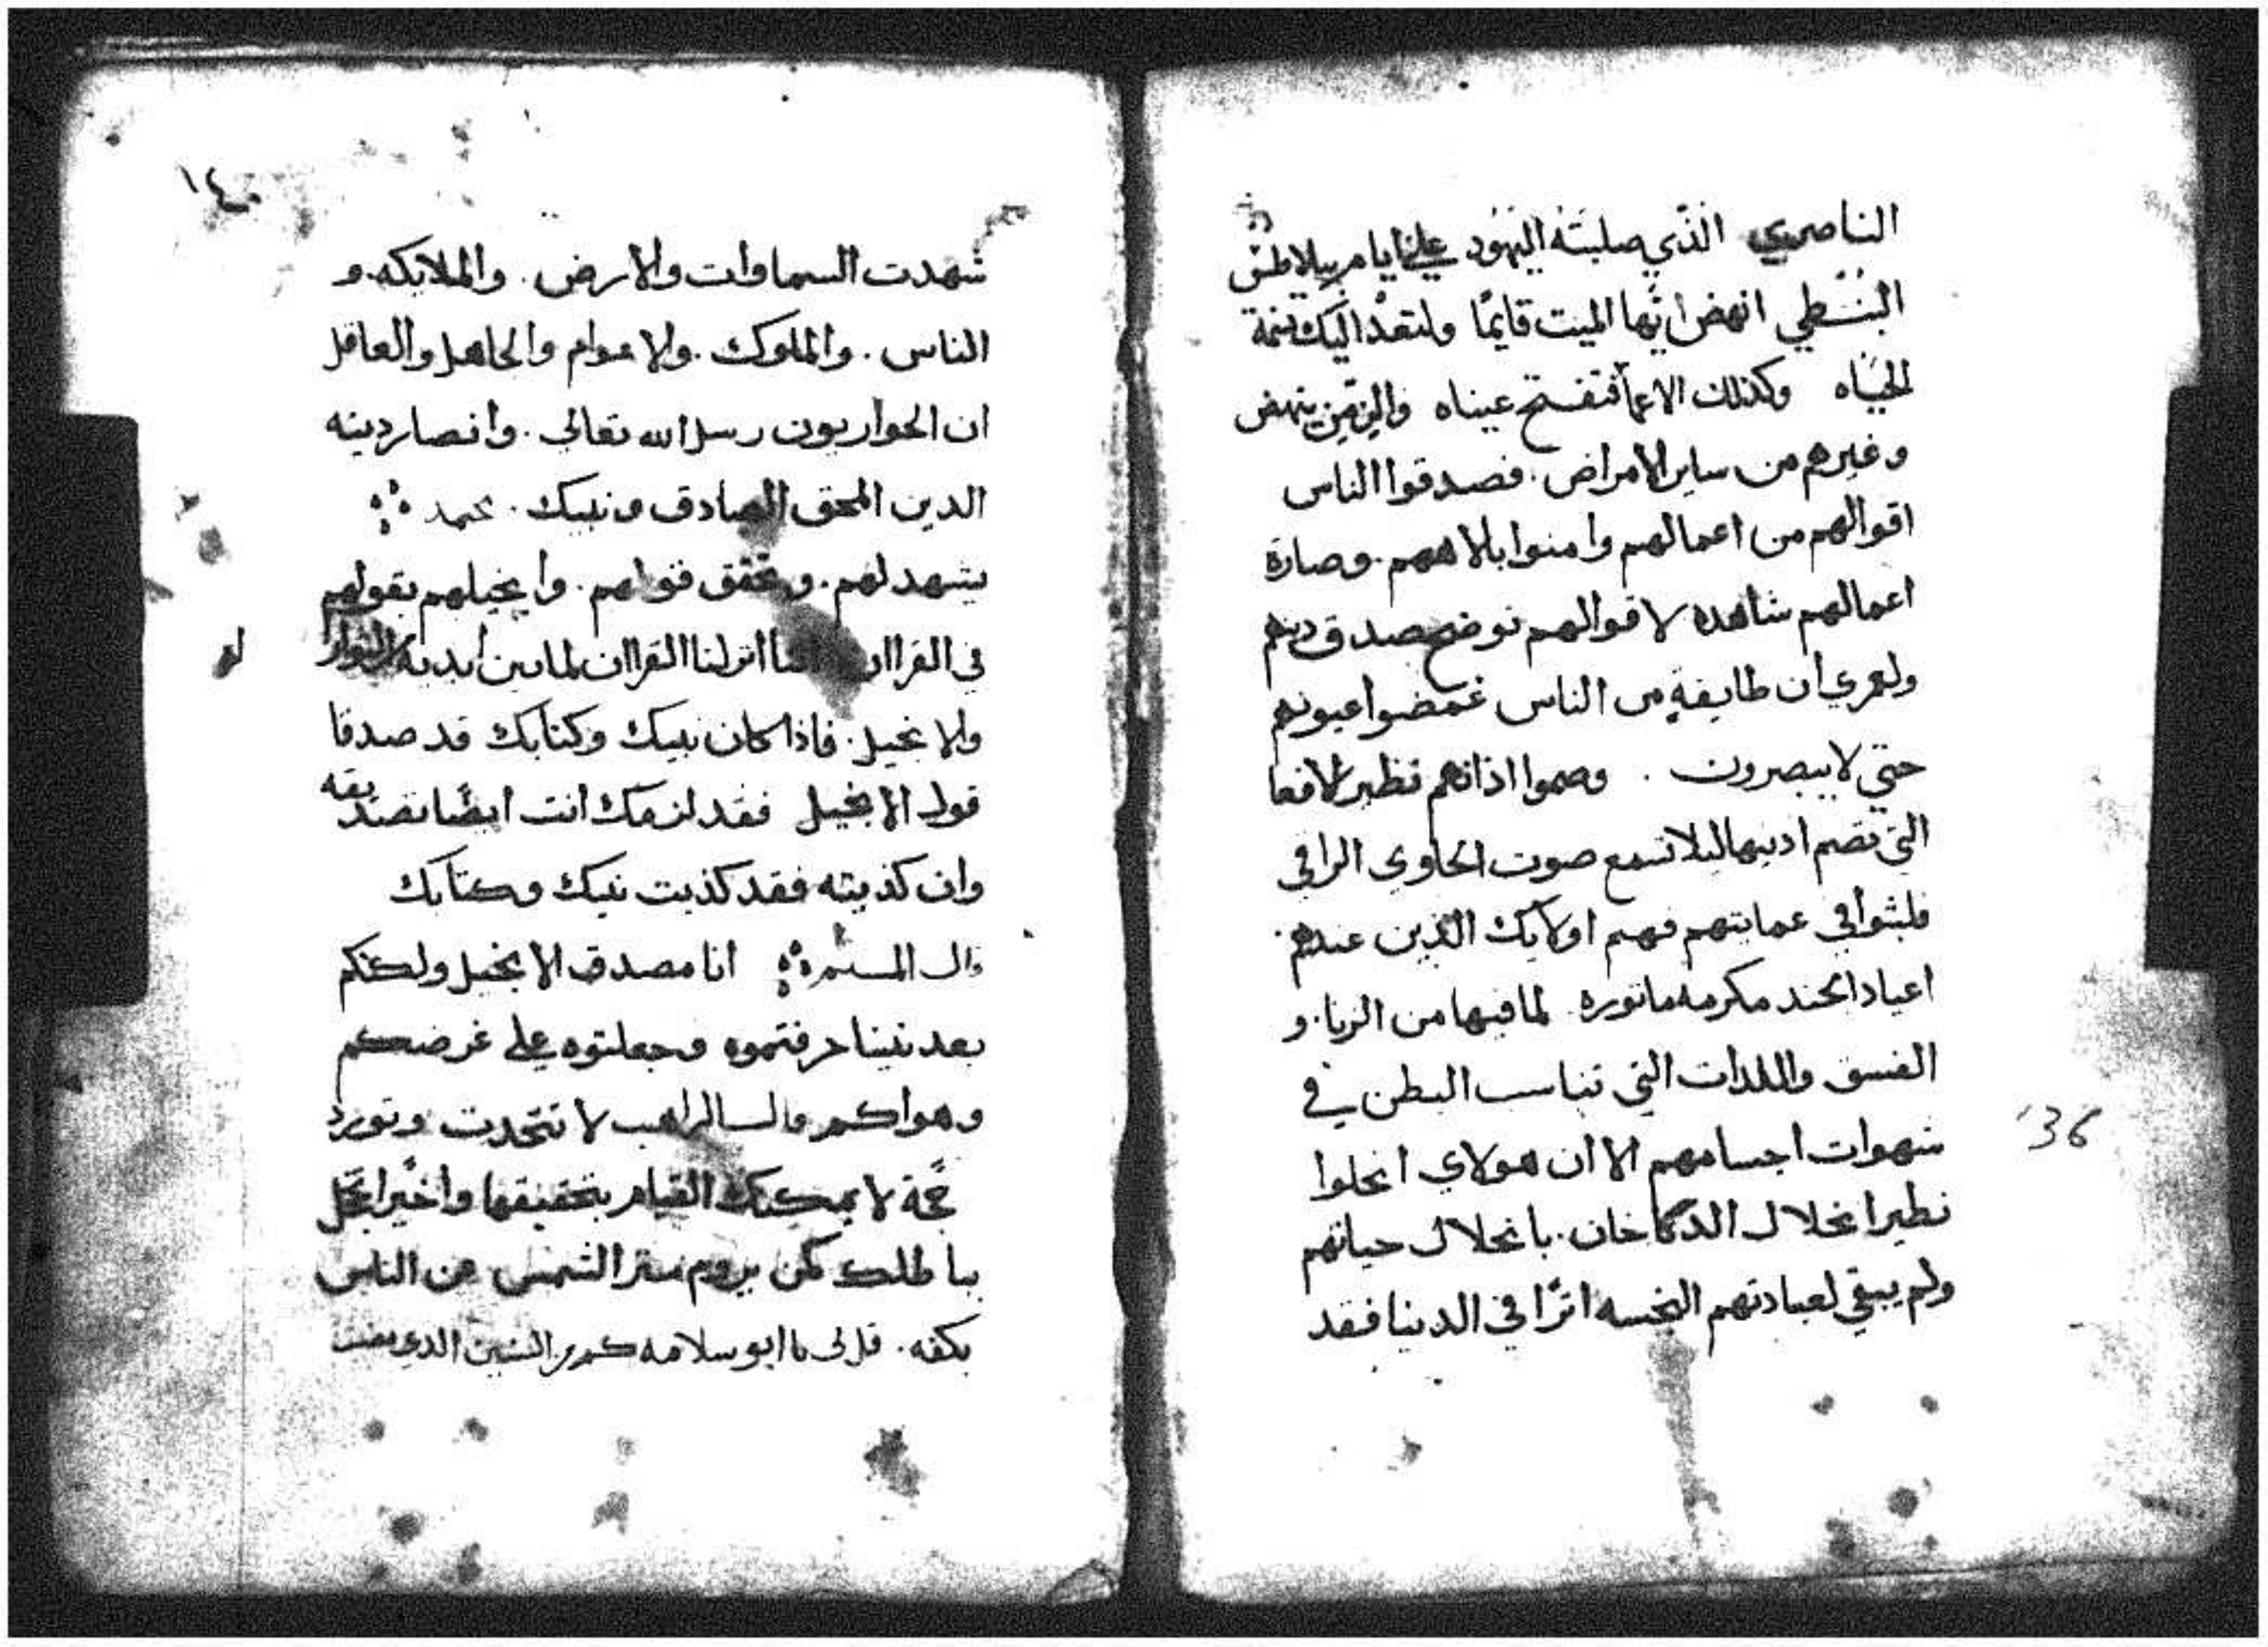 الناصري الذّي صلبتَه اليَهُود علي ايام بيلاطس
البُنْطي انهض ايّها الميت قايمًا ولتعدْ اليك نسمة
الحَياه وكذلك الاعما فتفتح عيناه والزمن ينهض
وغيرهم من ساير الامراض. فصدقوا الناس
اقوالهم من اعمالهم وامنوا بالاههم. وصارة
اعمالهم شاهده لاقوالهم توضح صدق دينهم
ولعمري ان طايفةٍ من الناس غمضوا عيونهم
حتي لا يبصرون . وصموا اذانهم نظير الافعا
التي تصم ادنيها ليلا تسمع صوت الحاوي الراقي
فلبثوا في عمايتهم فهم اولايك الذين عندهم
اعياد الجند مكرمه مانوره لما فيها من الزنا. و
الفسق واللدات التي تناسب البطن في
شهوات اجسامهم الا ان هولاي انحلوا
نظير انحلال الدخان. بانحلال حياتهم
ولم يبقي لعبادتهم النجسه اثرًا في الدنيا فقد
136
١٤
شهدت السماوات والارض. والملايكه. و
الناس. والملوك. والاعوام والجاهل والعاقل
ان الحواريون رسل الله تعالي. وانصار دينه
الدين المحق الصادق ونبيك. محمد
يشهد لهم. ويحقق قولهم. وانجيلهم بقولهم
في القراان انزلنا القراان لما بين ايديه
والانجيل. فاذا كان نبيك وكتابك قد صدقا
قول الانجيل فقد لزمك انت ايضًا تصديقه
وان كذبته فقد كذبت نبيك وكتابك
قال المسلم انا مصدق الانجيل ولكنكم
بعد نبينا حرفتموه وجعلتوه علي غرضكم
وهواكم قال الراهب لا تتحدت وتورد
حجّة لا يمكنك القيام بتحقيقها واخيرًا تخجل
بباطلك كمن يروم ستر الشمس عن الناس
بكفه. قل لي يا ابو سلامه كم من السنين الذي مضت